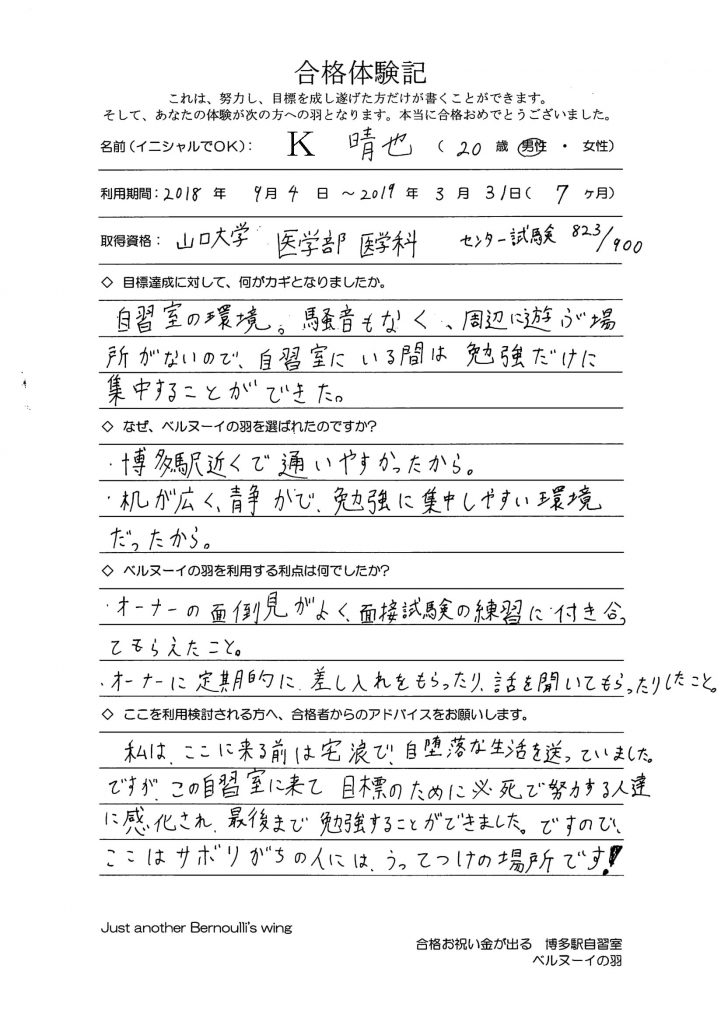 合格体験記
これは、努力し、目標を成し遂げた方だけが書くことができます。
そして、あなたの体験が次の方への羽となります。本当に合格おめでとうございました。
名前(イニシャルでOK): K 晴也 ( 20 歳 男性 ・ 女性)
利用期間:2018 年 9月 4 日 ～2019 年 3 月 31日( 7 ヶ月)
取得資格: 山口大学 医学部 医学科 センター試験 823/900
◇ 目標達成に対して、何がカギとなりましたか。
自習室の環境。騒音もなく、周辺に遊ぶ場
所がないので、自習室にいる間は勉強だけに
集中することができた。
◇ なぜ、ベルヌーイの羽を選ばれたのですか?
・博多駅近くで通いやすかったから。
・机が広く、静かで、勉強に集中しやすい環境
だったから。
◇ ベルヌーイの羽を利用する利点は何でしたか?
・オーナーの面倒見がよく、面接試験の練習に付き合っ
てもらえたこと。
・オーナーに定期的に、差し入れをもらったり、話を聞いてもらったりしたこと。
◇ ここを利用検討される方へ、合格者からのアドバイスをお願いします。
私は、ここに来る前は宅浪で、自堕落な生活を送っていました。
ですが、この自習室に来て 目標のために必死で努力する人達
に感化され、最後まで勉強することができました。ですので、
ここはサボりがちの人には、うってつけの場所です!
Just another Bernoulli's wing
合格お祝い金が出る 博多駅自習室
ベルヌーイの羽